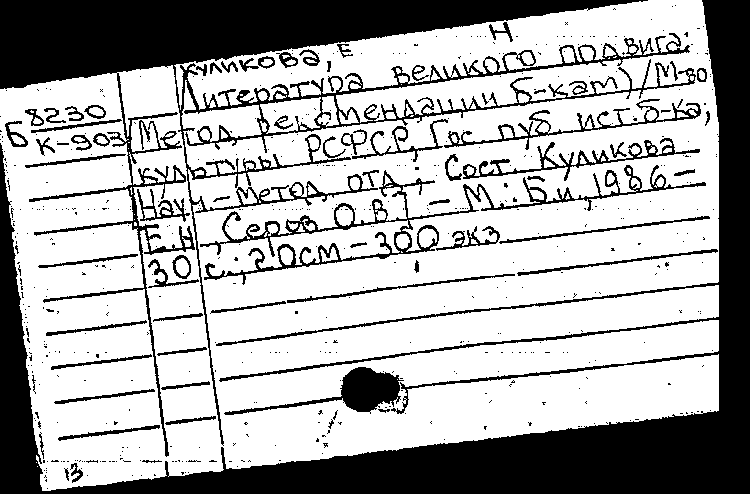 Куликова, Е Н
Литература великого подвига:
Б 8230
К-903
(Метод. рекомендации б-кам) / М-во
культуры РСФСР, Гос. пуб. ист. б-ка;
Науч.-метод. отд.; Сост. Куликова
Е.Н., Серов О.В.] - М.: Б.и., 1986.-
30 с.; 20см - 300 экз
13